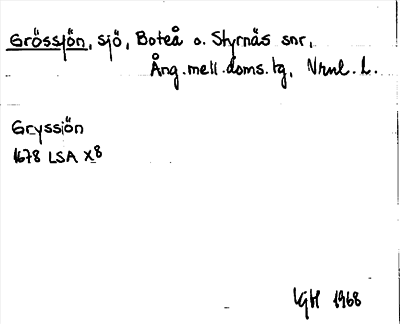 Grössjön, sjö, Boteå o. Styrnäs snr,
Ång. mell. doms. tg, Vrnl. L.
Gryssjön
1678 LSA X8
LGH 1968